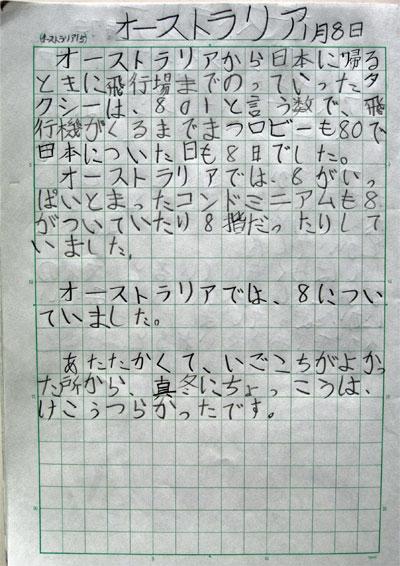 オーストラリア 1月8日
(オーストラリア(5))
オーストラリアから日本に帰る
ときに飛行場までのっていったタ
クシーは、801と言う数で、飛
行機がくるまでまつロビーも80で
日本についた日も8日でした。
オーストラリアでは、8がいっ
ぱいとまったコンドミニアムも8
がついていたり8階だったりして
いました。
オーストラリアでは、8につい
ていました。
あたたかくて、いごこちがよかっ
た所から、真冬にちょっこうは、
けこうつらかったです。